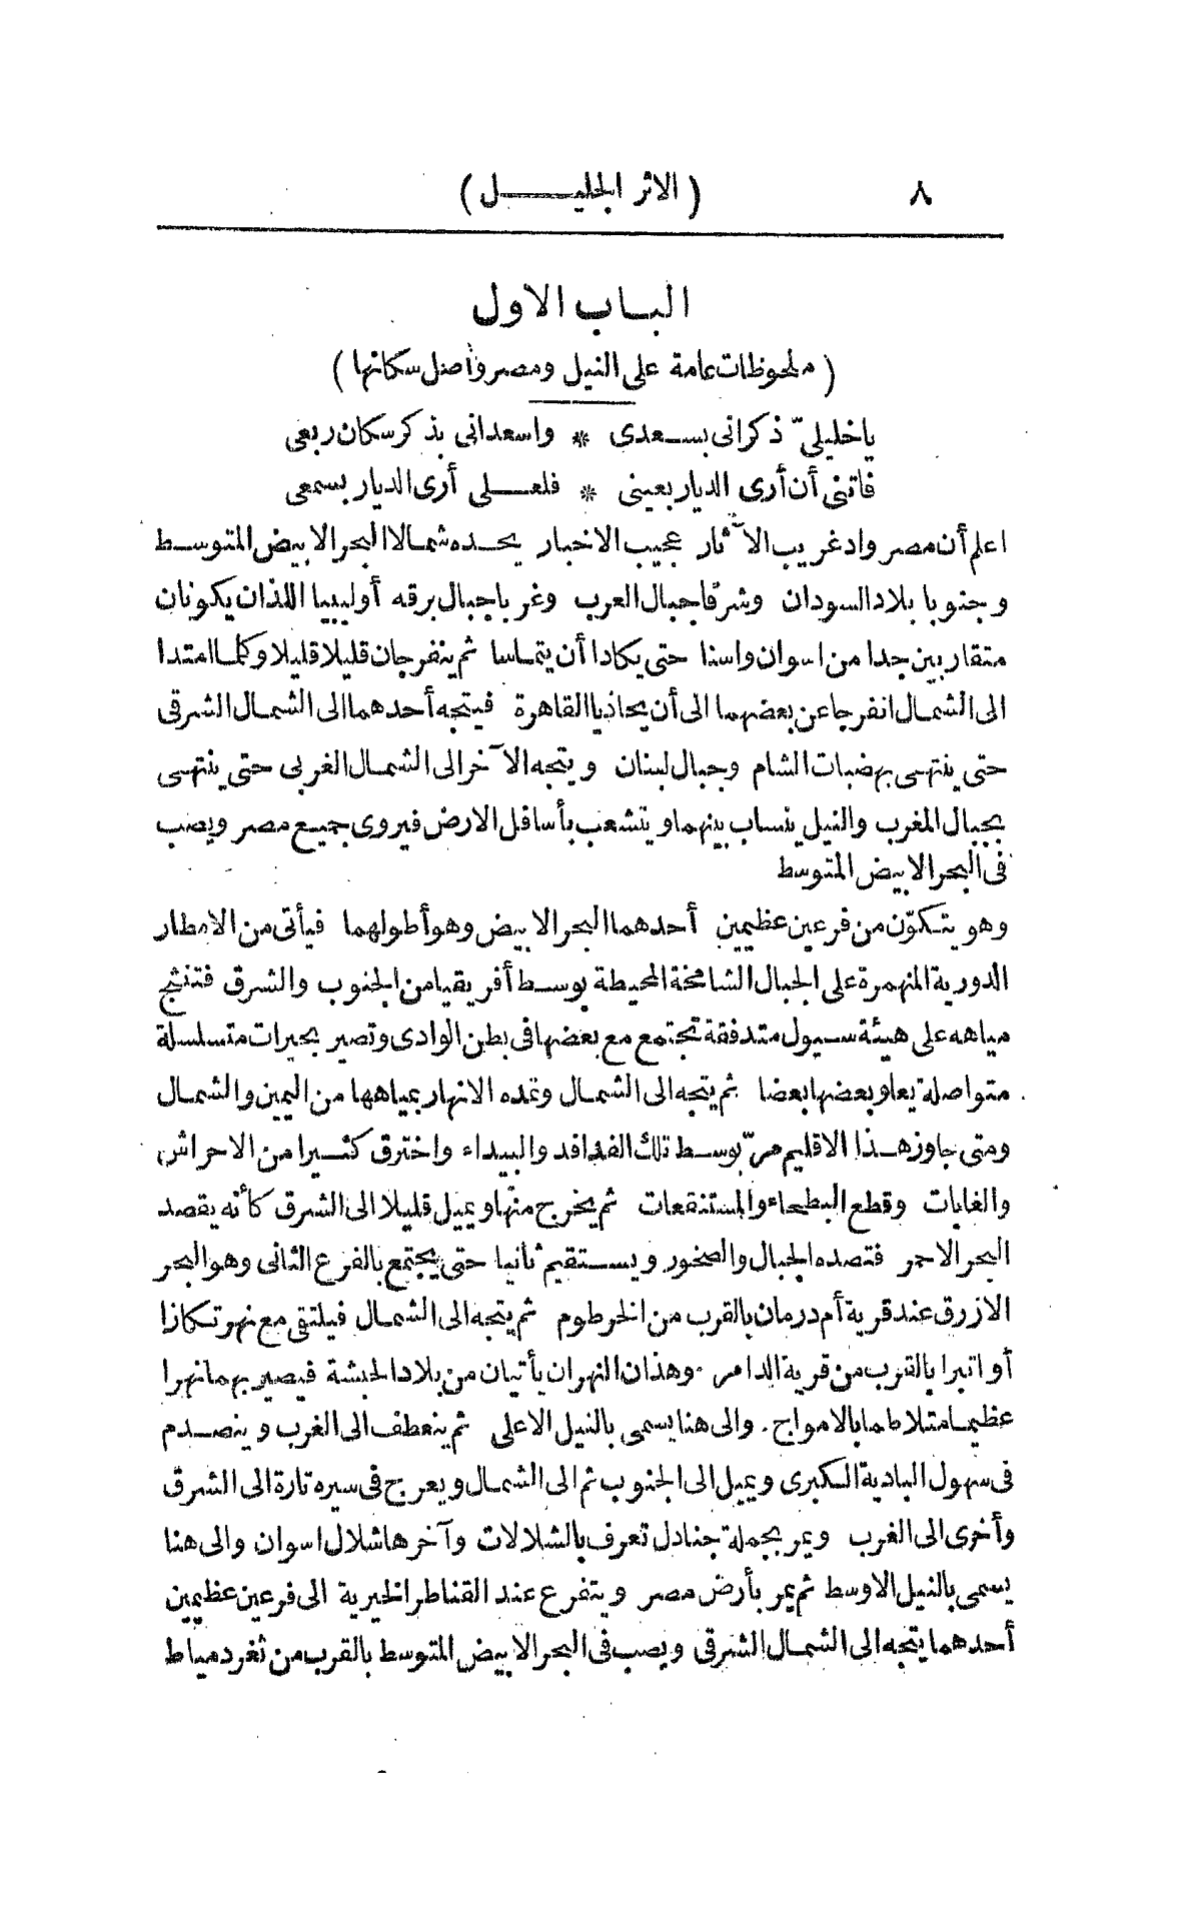 ٨
( الاثر الجليـــــــل )
البـاب الاول
( ملحوظات عامة على النيل ومصر وأصل سكانها )
ياخليلىّ ذكرانى بسـعدى * واسعدانى بذكر سكان ربعى
فاتنى أن أرى الديار بعينى * فلعـــلى أرى الديار بسمعى
اعلم أن مصر واد غريب الآثار عجيب الاخبار يحـده شمـالا البحر الابيض المتوسـط
وجنوبا بلاد السودان وشرقا جبال العرب وغربا جبال برقه أو ليبيا اللذان يكونان
متقاربين جدا من اسوان واسنا حتى يكادا أن يتماسا ثم ينفرجان قليلا قليلا وكلما امتدا
الى الشمـال انفرجا عن بعضهما الى أن يحاذيا القاهرة فيتجه أحدهما الى الشمـال الشرقى
حتى ينتهى بهضبات الشام وجبال لبنان ويتجه الآخر الى الشمـال الغربى حتى ينتهى
بجبال المغرب والنيل ينساب بينهما ويتشعب بأسافل الارض فيروى جميع مصر ويصب
فى البحر الابيض المتوسط
وهو يتكوّن من فرعين عظيمين أحدهما البحر الابيض وهو أطولهما فيأتى من الامطار
الدورية المنهمرة على الجبال الشامخة المحيطة بوسـط أفريقيا من الجنوب والشرق فتنثج
مياهه على هيئة سـيول متدفقة تجتمع مع بعضها فى بطن الوادى وتصير بحيرات متسلسلة
متواصلة يعلو بعضها بعضا ثم يتجه الى الشمـال وتمده الانهار بمياهها من اليمين والشمال
ومتى جاوز هـذا الاقليم مرّ بوسـط تلك الفدافد والبيداء واخترق كثـيرا من الاحراش
والغابات وقطع البطحاء والمستنقعات ثم يخرج منها ويميل قليلا الى الشرق كأنه يقصد
البحر الاحمر فتصده الجبال والصخور ويسـتقيم ثانيا حتى يجتمع بالفرع الثانى وهو البحر
الازرق عند قرية أم درمان بالقرب من الخرطوم ثم يتجه الى الشمـال فيلتقى مع نهر تكازا
أو اتبرا بالقرب من قرية الدامر وهذان النهران يأتيان من بلاد الحبشة فيصير بهما نهرا
عظيمـا متلاطما بالامواج . والى هنا يسمى بالنيل الاعلى ثم ينعطف الى الغرب وينصـدم
فى سهول البادية الـكبرى ويميل الى الجنوب ثم الى الشمـال ويعرج فى سيره تارة الى الشرق
وأخرى الى الغرب ويمر بجملة جنادل تعرف بالشلالات وآخرها شلال اسوان والى هنا
يسمى بالنيل الاوسط ثم يمر بأرض مصر ويتفرع عند القناطر الخيرية الى فرعين عظيمين
أحدهما يتجه الى الشمـال الشرقى ويصب فى البحر الابيض المتوسط بالقرب من ثغر دمياط